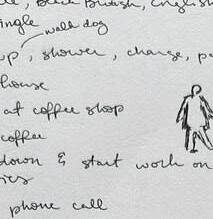 Black British, English
ingle
walk dog
up, shower, change, p
house
at coffee shop
coffee
down & start work on
ies
phone call